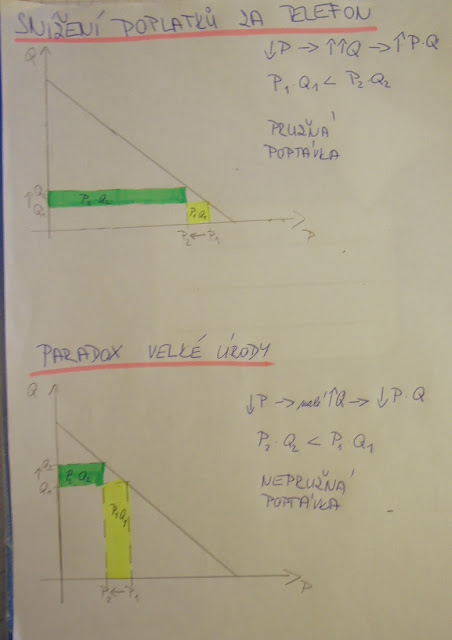 SNÍŽENÍ POPLATKŮ ZA TELEFON
↓P → ↑↑Q → ↑P·Q
P₁·Q₁ < P₂·Q₂
PRUŽNÁ
POPTÁVKA
Q
Q₂
↑
Q₁
P₂ Q₂
P₁Q₁
P₂ ← P₁
P
PARADOX VELKÉ ÚRODY
↓P → malé ↑Q → ↓P·Q
P₂·Q₂ < P₁Q₁
NEPRUŽNÁ
POPTÁVKA
Q
↑Q₂
Q₁
P₂ Q₂
P₁Q₁
P₂ ← P₁
P